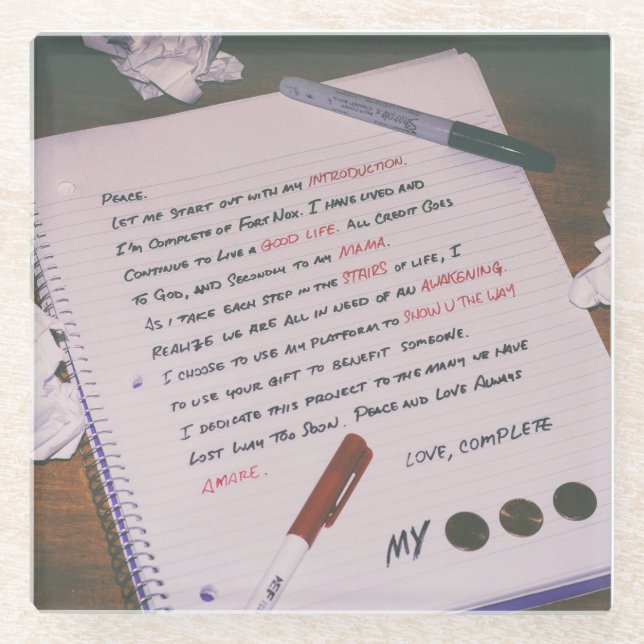 PEACE.
LET ME START OUT WITH MY INTRODUCTION.
I'M COMPLETE OF FORT NOX. I HAVE LIVED AND
CONTINUE TO LIVE A GOOD LIFE. ALL CREDIT GOES
TO GOD, AND SECONDLY TO MY MAMA.
AS I TAKE EACH STEP IN THE STAIRS OF LIFE, I
REALIZE WE ARE ALL IN NEED OF AN AWAKENING.
I CHOOSE TO USE MY PLATFORM TO SHOW U THE WAY
TO USE YOUR GIFT TO BENEFIT SOMEONE.
I DEDICATE THIS PROJECT TO THE MANY WE HAVE
LOST WAY TOO SOON. PEACE AND LOVE ALWAYS
AMARE.
LOVE, COMPLETE
MY
Sharpie